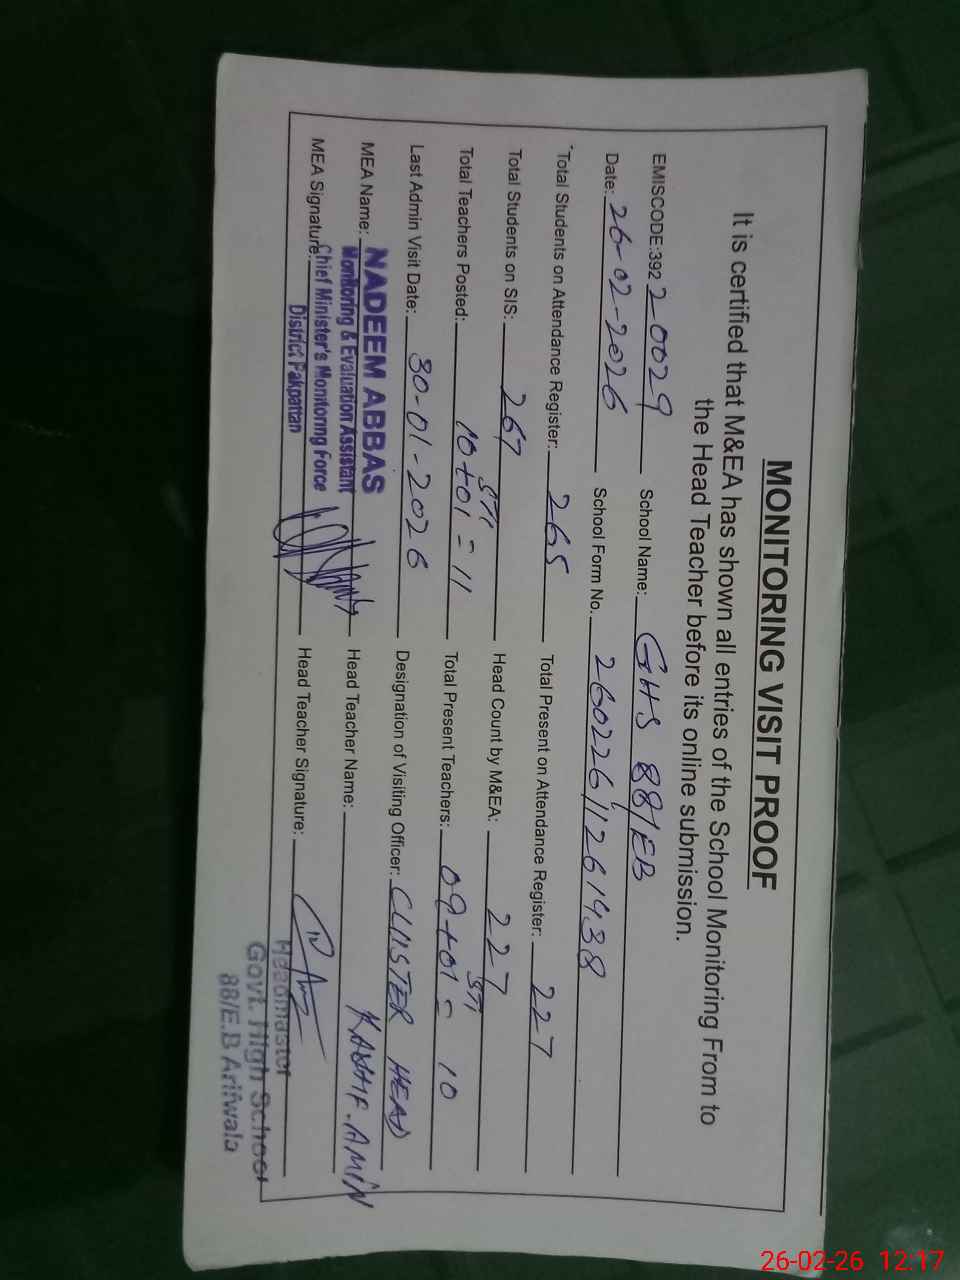 MONITORING VISIT PROOF
It is certified that M&EA has shown all entries of the School Monitoring From to
the Head Teacher before its online submission.
EMISCODE:392 20029 School Name: GHS 88/EB
Date: 26-02-2026 School Form No. 26022611261938
*Total Students on Attendance Register: 265 Total Present on Attendance Register: 227
Total Students on SIS: 267 Head Count by M&EA: 227
Total Teachers Posted: 10+01 STI = 11 Total Present Teachers: 09+01 STI = 10
Last Admin Visit Date: 30-01-2026 Designation of Visiting Officer: CLUSTER HEAD
MEA Name: NADEEM ABBAS Head Teacher Name: KASHIF.AMIN
Monitoring & Evaluation Assistant
MEA Signature: Chief Minister's Monitoring Force Head Teacher Signature:
District Pakpattan
Headmaster
Govt. High School
88/E.B Arifwala
26-02-26 12:17